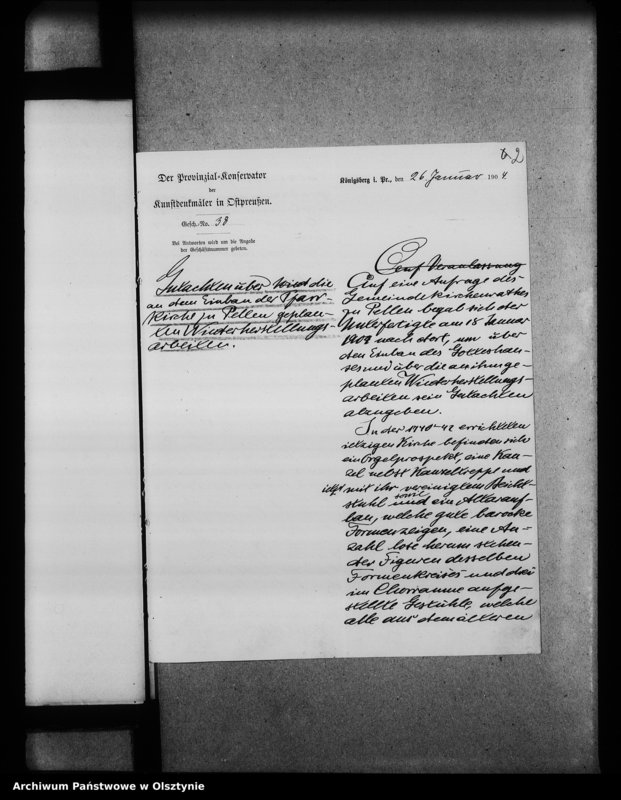 2
Der Provinzial-Konservator
der
Kunstdenkmäler in Ostpreußen.
Gesch.-No. 38
Bei Antworten wird um die Angabe
der Geschäftsnummer gebeten.
Königsberg i. Pr., den 26. Januar 1904.
Gutachten über die
an dem Einbau der Pfarr-
kirche zu Pellen geplan-
ten Wiederherstellungs-
arbeiten.
Auf Veranlassung
Auf eine Anfrage des
Gemeindekirchenrathes
zu Pellen begab sich der
Unterfertigte am 18 Januar
nach dort, um über
den Einbau des Gotteshau-
ses und über die an ihm ge-
planten Wiederherstellungs-
arbeiten sein Gutachten
abzugeben.
In der 1840-42 errichteten
jetzigen Kirche befinden sich
ein Orgelprospekt, eine Kan-
zel nebst Kanzeltreppe und
jetzt mit ihr vereinigtem Beicht-
stuhl sowie und ein Altarauf-
bau, welche gute barocke
Formen zeigen, eine An-
zahl lose herum stehen-
der Figuren desselben
Formenkreises und drei
im Chorraume aufge-
stellte Gestühle, welche
alle aus dem älteren
Archiwum Państwowe w Olsztynie